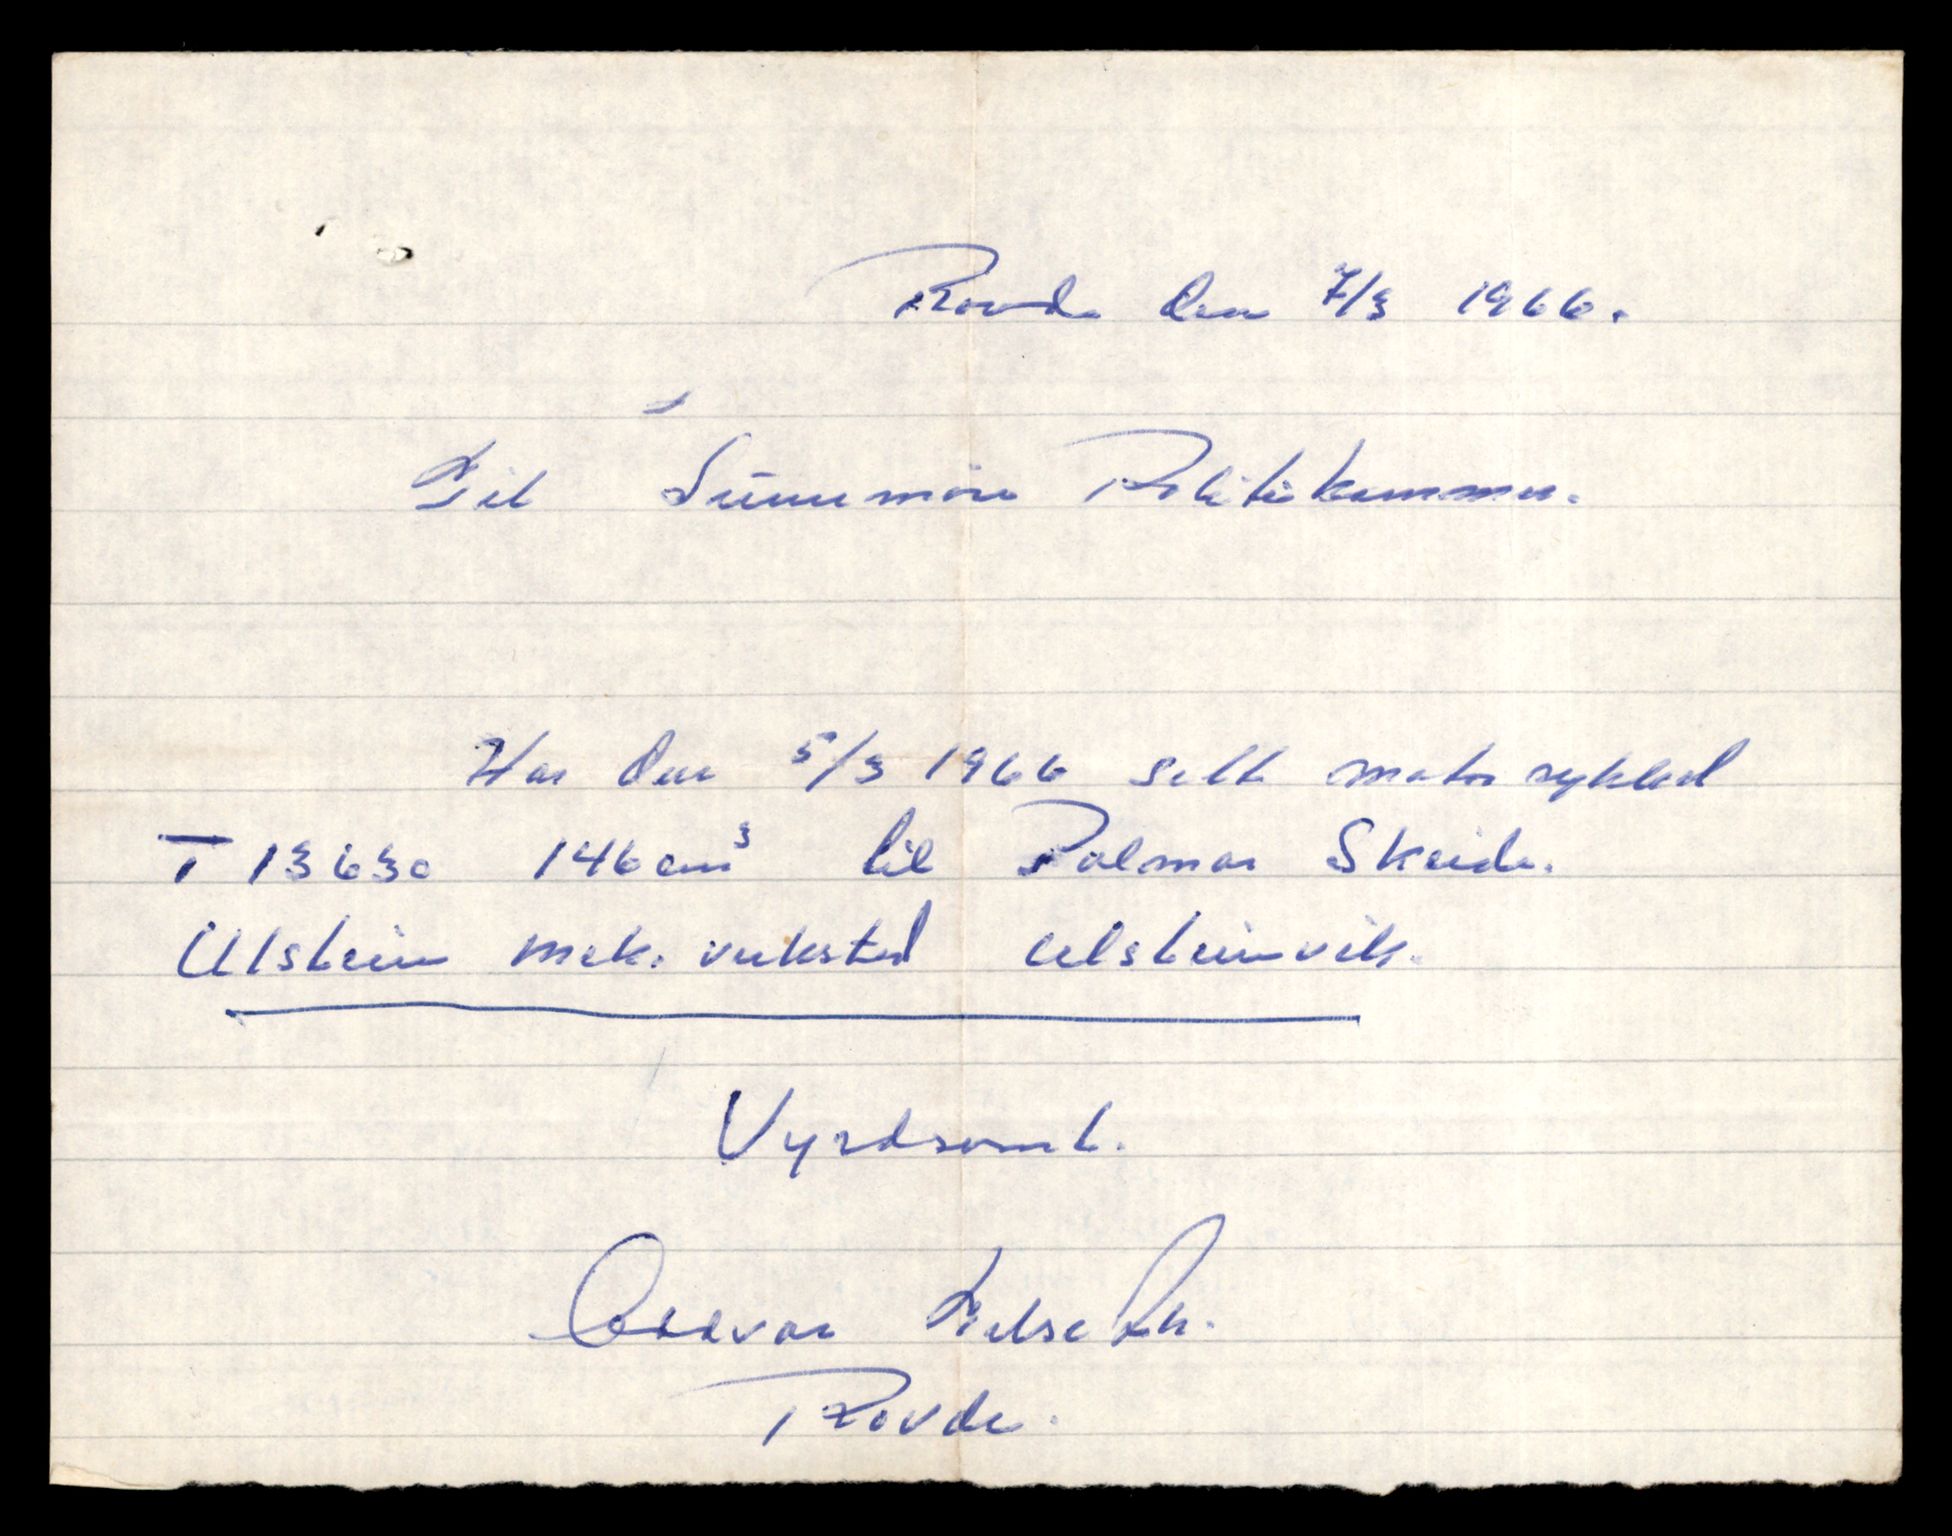 Rovde den 7/3 1966.
Til Sunnmöre Politikammer.
Har den 5/3 1966 selt motorsykkel
T 13630 146 cm³ til Palmar Skeide.
Ulstein mek. verksted Ulsteinvik.
Vyrdsamt.
Oddvar
Rovde.